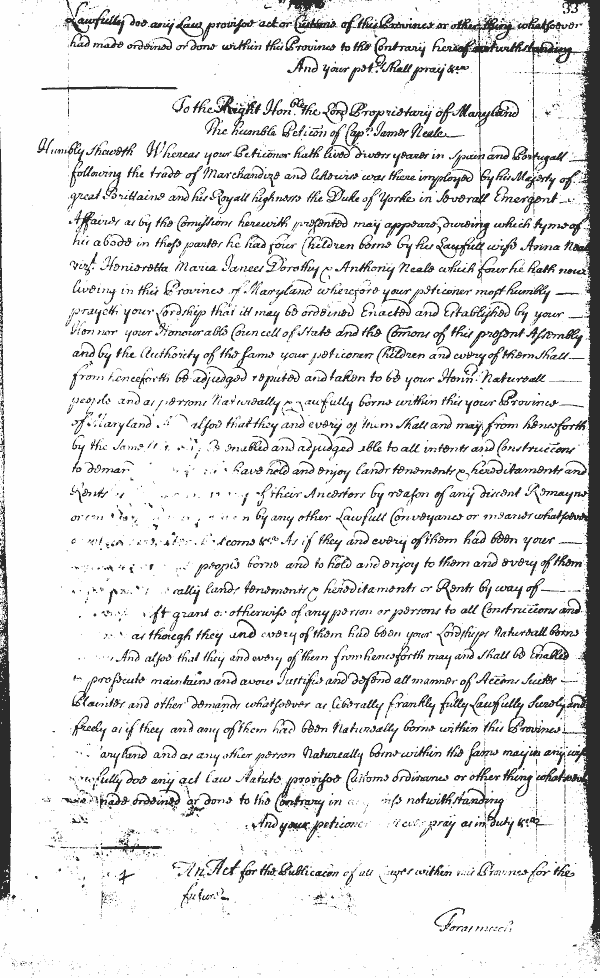 33
Lawfully doe any Law provisoe act or Custome of this Province or other thing whatsoever
had made ordeined or done within this Province to the Contrary hereof notwithstanding
And your petr. shall pray &ca
To the Right Honble. the Lord Proprietary of Maryland
The humble Peticon of Capt. James Neale
Humbly Sheweth Whereas your Peticonor hath lived divers yeares in Spain and Portugall
following the trade of Marchandize and likewise was there imployed by his Majesty of
great Brittaine and his Royall highness the Duke of Yorke in severall Emergent
Affaires as by the Comissions herewith presented may appeare, dureing which tyme of
his abode in those partes he had four Children borne by his Lawfull wife Anna Neale
vizt. Henieretta Maria James Dorothy & Anthony Neale which four he hath now
liveing in this Province of Maryland wherefore your peticoner most humbly
prayeth your Lordship that itt may be ordeined Enacted and Established by your
Honnor your Honourable Councell of State and the Comons of this present Assembly
and by the Authority of the same your peticoners Children and every of them shall
from henceforth be adjudged reputed and taken to be your Honrs. Natureall
people and as persons Natureally & Lawfully borne within this your Province
of Maryland And alsoe that they and every of them shall and may from henceforth
by the same enabled and adjudged able to all intents and Construccons
to demand have hold and enjoy lands tenements & hereditaments and
Rents of their Ancestors by reason of any discent Remayne
or by any other Lawfull Conveyance or meanes whatsoever
come &ca As if they and every of them had been your
people borne and to hold and enjoy to them and every of them
rally lands tenements & hereditaments or Rents by way of
gift grant or otherwise of any person or persons to all Construccons and
as though they and every of them had been your Lordships Natureall borne
And alsoe that they and every of them from henceforth may and shall be Enabled
prosecute maintaine and avow Justifie and defend all manner of Accons Suites
Plaintes and other demands whatsoever as liberally frankly fully Lawfully Surely and
freely as if they and any of them had been Natureally borne within this Province
Maryland and as any other person Natureally borne within the same may in any wise
Lawfully doe any act law Statute provisoe Custome ordinance or other thing whatsoever
made ordeined or done to the Contrary in any wise notwithstanding
And your peticoner shall ever pray as in duty &ca
An Act for the Publicacon of all Lawes within this Province for the
future
Forasmuch